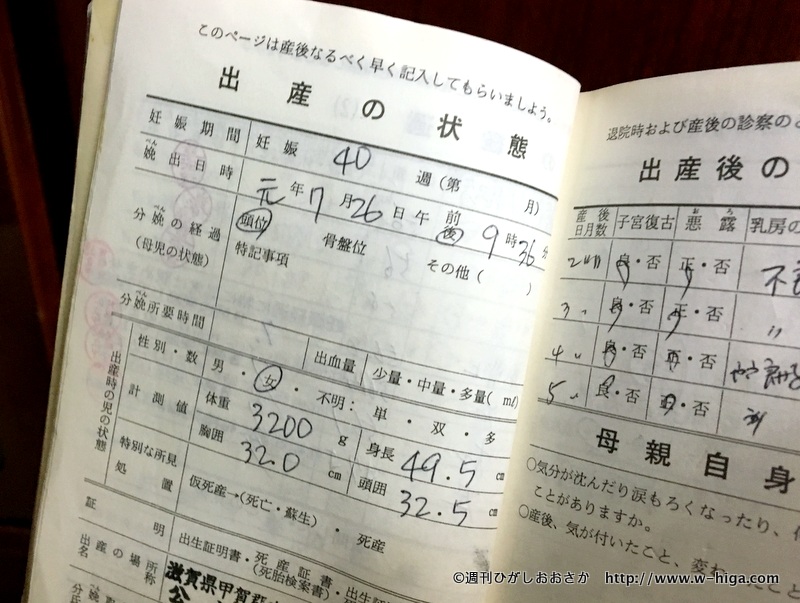 このページは産後なるべく早く記入してもらいましょう。
出産の状態
妊娠期間 妊娠 40 週(第 月)
娩出日時 元年7月26日午 前 後 9時36分
分娩の経過 (母児の状態) 頭位 骨盤位 その他( )
特記事項
分娩所要時間 出血量 少量・中量・多量( ml)
出産時の児の状態
性別・数 男・女・不明: 単・双・多
計測値 体重 3200 g 身長 49.5 cm
胸囲 32.0 cm 頭囲 32.5 cm
特別な所見 処置 仮死産→(死亡・蘇生)・死産
証明 出生証明書・死産証書(死胎検案書)・出生証
出産の場所 名称 滋賀県甲賀郡
公
退院時および産後の診察の
出産後の
産後日月数 子宮復古 悪露 乳房の
2 良・否 正・否 不
3 良・否 正・否 〃
4 良・否 正・否
5 良・否 正・否
母親自身
○気分が沈んだり涙もろくなったり、
ことがありますか。
○産後、気が付いたこと、変わったこと
©週刊ひがしおおさか http://www.w-higa.com